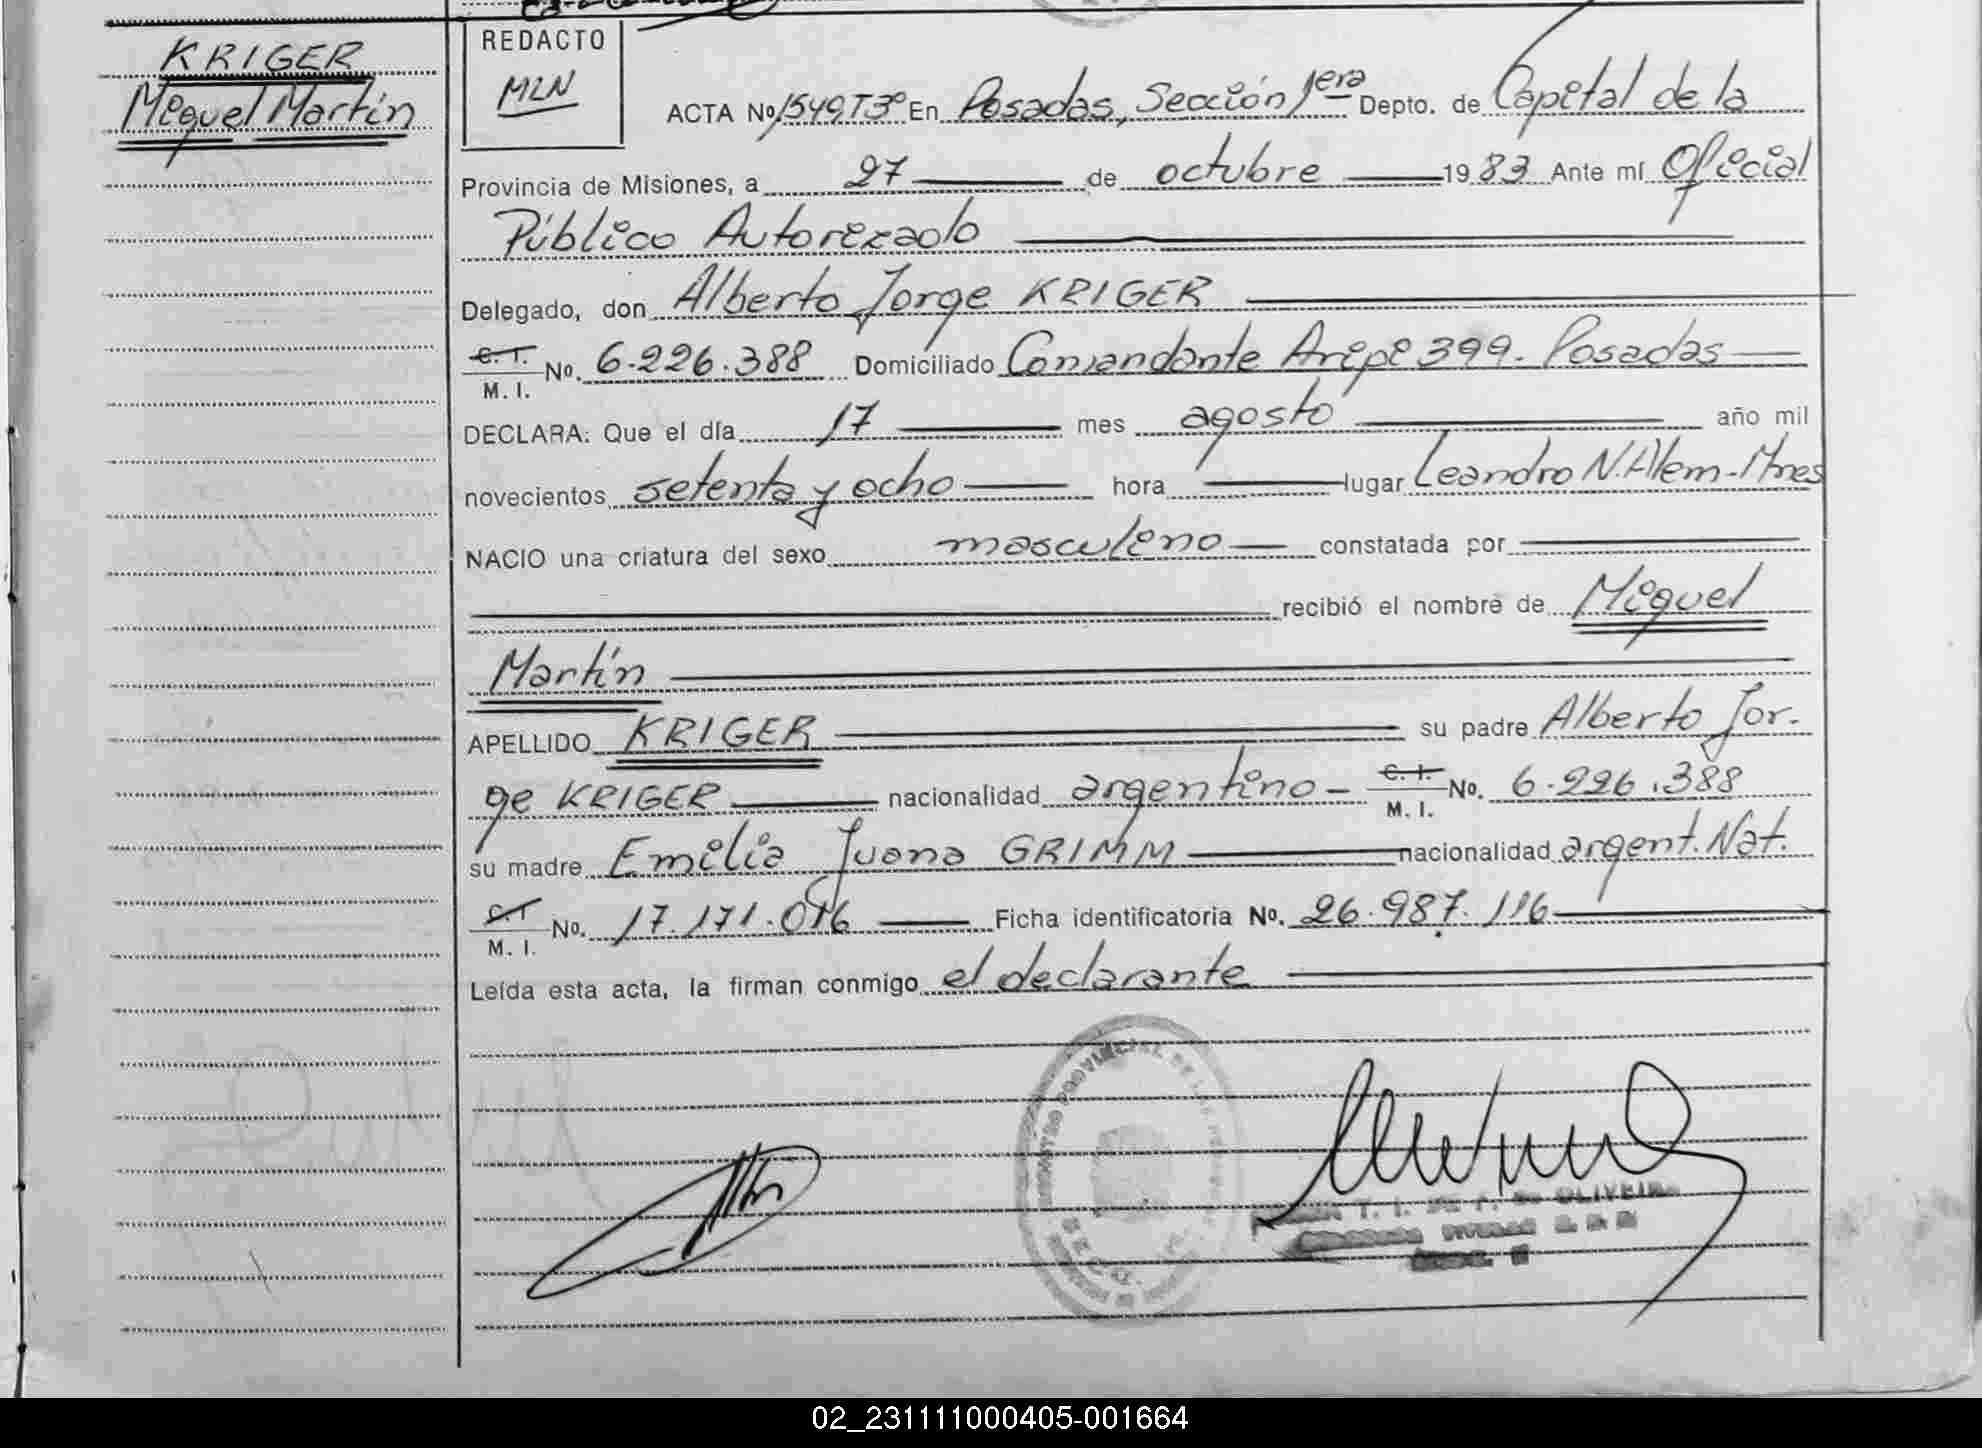 KRIGER
Miguel Martín
REDACTO
MLN
ACTA No. 1549T3º En Posadas, Sección 1era Depto. de Capital de la
Provincia de Misiones, a 27 de octubre 1983 Ante mí Oficial
Público Autorizado
Delegado, don Alberto Jorge KRIGER
C. I.
M. I. No. 6.226.388 Domiciliado Comandante Aripi 399. Posadas
DECLARA: Que el día 17 mes agosto año mil
novecientos setenta y ocho hora lugar Leandro N. Alem-Mnes
NACIO una criatura del sexo masculino constatada por
recibió el nombre de Miguel
Martín
APELLIDO KRIGER su padre Alberto Jor-
ge KRIGER nacionalidad argentino C. I.
M. I. No. 6.226.388
su madre Emilia Juana GRIMM nacionalidad argent. Nat.
C. I.
M. I. No. 17.171.016 Ficha identificatoria No. 26.987.116
Leída esta acta, la firman conmigo el declarante
PROVINCIAL DE
T. I. DE OLIVEIRA
02_231111000405-001664